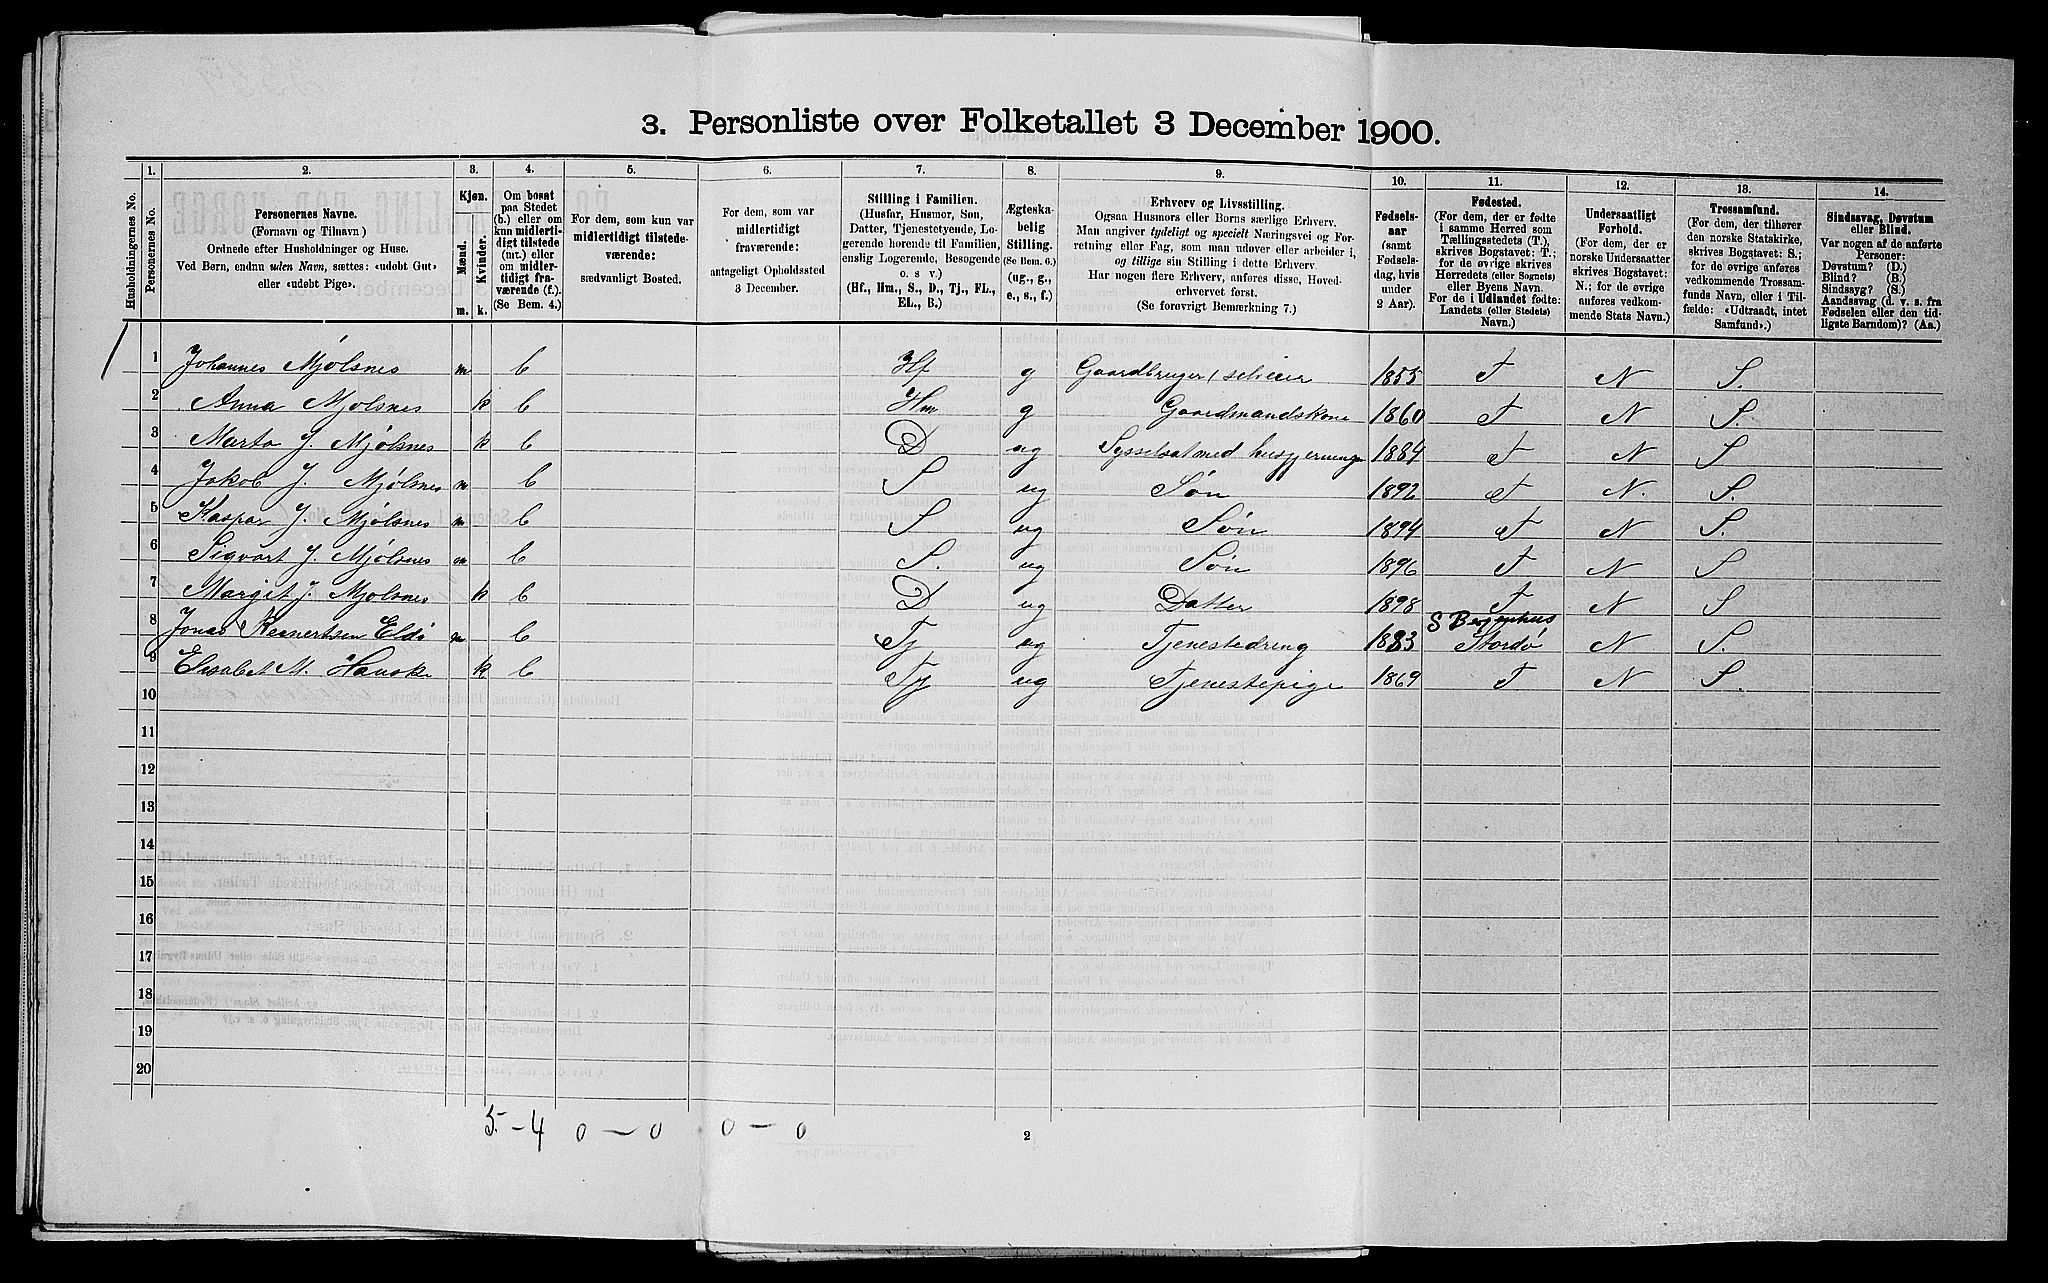 3. Personliste over Folketallet 3 December 1900.
Husholdningernes No.
1. Personernes No.
2. Personernes Navne.
(Fornavn og Tilnavn)
Ordnede efter Husholdninger og Huse.
Ved Børn, endnu uden Navn, sættes: «udøbt Gut»
eller «udøbt Pige».
3. Kjøn.
Mænd. m.
Kvinder. k.
4. Om bosat
paa Stedet
(b.) eller om
kun midlerti-
digt tilstede
(mt.) eller
om midler-
tidigt fra-
værende (f.).
(Se Bem. 4.)
5. For dem, som kun var
midlertidigt tilstede-
værende:
sædvanligt Bosted.
6. For dem, som var
midlertidigt
fraværende:
antageligt Opholdssted
3 December.
7. Stilling i Familien.
(Husfar, Husmor, Søn,
Datter, Tjenestetyende, Lo-
gerende hørende til Familien,
enslig Logerende, Besøgende
o. s v.)
(Hf., Hm., S., D., Tj., FL.,
EL., B.)
8. Ægteska-
belig
Stilling.
(Se Bem. 6.)
(ug., g.,
e., s., f.)
9. Erhverv og Livsstilling.
Ogsaa Husmors eller Børns særlige Erhverv.
Man angiver tydeligt og specielt Næringsvei og For-
retning eller Fag, som man udøver eller arbeider i,
og tillige sin Stilling i dette Erhverv.
Har nogen flere Erhverv, anføres disse, Hoved-
erhvervet først.
(Se forøvrigt Bemærkning 7.)
10. Fødsels-
aar
(samt
Fødsels-
dag, hvis
under
2 Aar).
11. Fødested.
(For dem, der er fødte
i samme Herred som
Tællingsstedets (T.),
skrives Bogstavet: T.;
for de øvrige skrives
Herredets (eller Sognets)
eller Byens Navn.
For de i Udlandet fødte:
Landets (eller Stedets)
Navn.)
12. Undersaatligt
Forhold.
(For dem, der er
norske Undersaatter
skrives Bogstavet:
N.; for de øvrige
anføres vedkom-
mende Stats Navn.)
13. Trossamfund.
(For dem, der tilhører
den norske Statskirke,
skrives Bogstavet: S.;
for de øvrige anføres
vedkommende Trossam-
funds Navn, eller i Til-
fælde: «Udtraadt, intet
Samfund».)
14. Sindssvag, Døvstum
eller Blind.
Var nogen af de anførte
Personer:
Døvstum? (D.)
Blind? (B.)
Sindssyg? (S.)
Aandssvag (d. v. s. fra
Fødselen eller den tid-
ligste Barndom)? (Aa.)
1 Johannes Mjølsnes m b Hf g Gaardbruger, seleier 1855 T N S.
2 Anna Mjølsnes k b Hm g Gaardmandskone 1860 T N S.
3 Marta J. Mjølsnes k b D ug Sysselsat med husgjerninge 1884 T N S
4 Jakob J. Mjølsnes m b S ug Søn 1892 T N. S.
5 Kaspar J. Mjølsnes m b S. ug Søn 1894 T N S.
6 Sigvart J. Mjølsnes m b S. ug Søn 1896 T N S
7 Margit J. Mjølsnes k b D ug Datter 1898 T N S
8 Jonas Eldø m b Tj ug Tjenestedreng 1883 S Bergenhus Stordø N S.
9 Elisabet M. Hauske k b Tj ug Tjenestepige 1869 T N S.
10
11
12
13
14
15
16
17
18
19
20
5 – 4 0 – 0 0 – 0
2